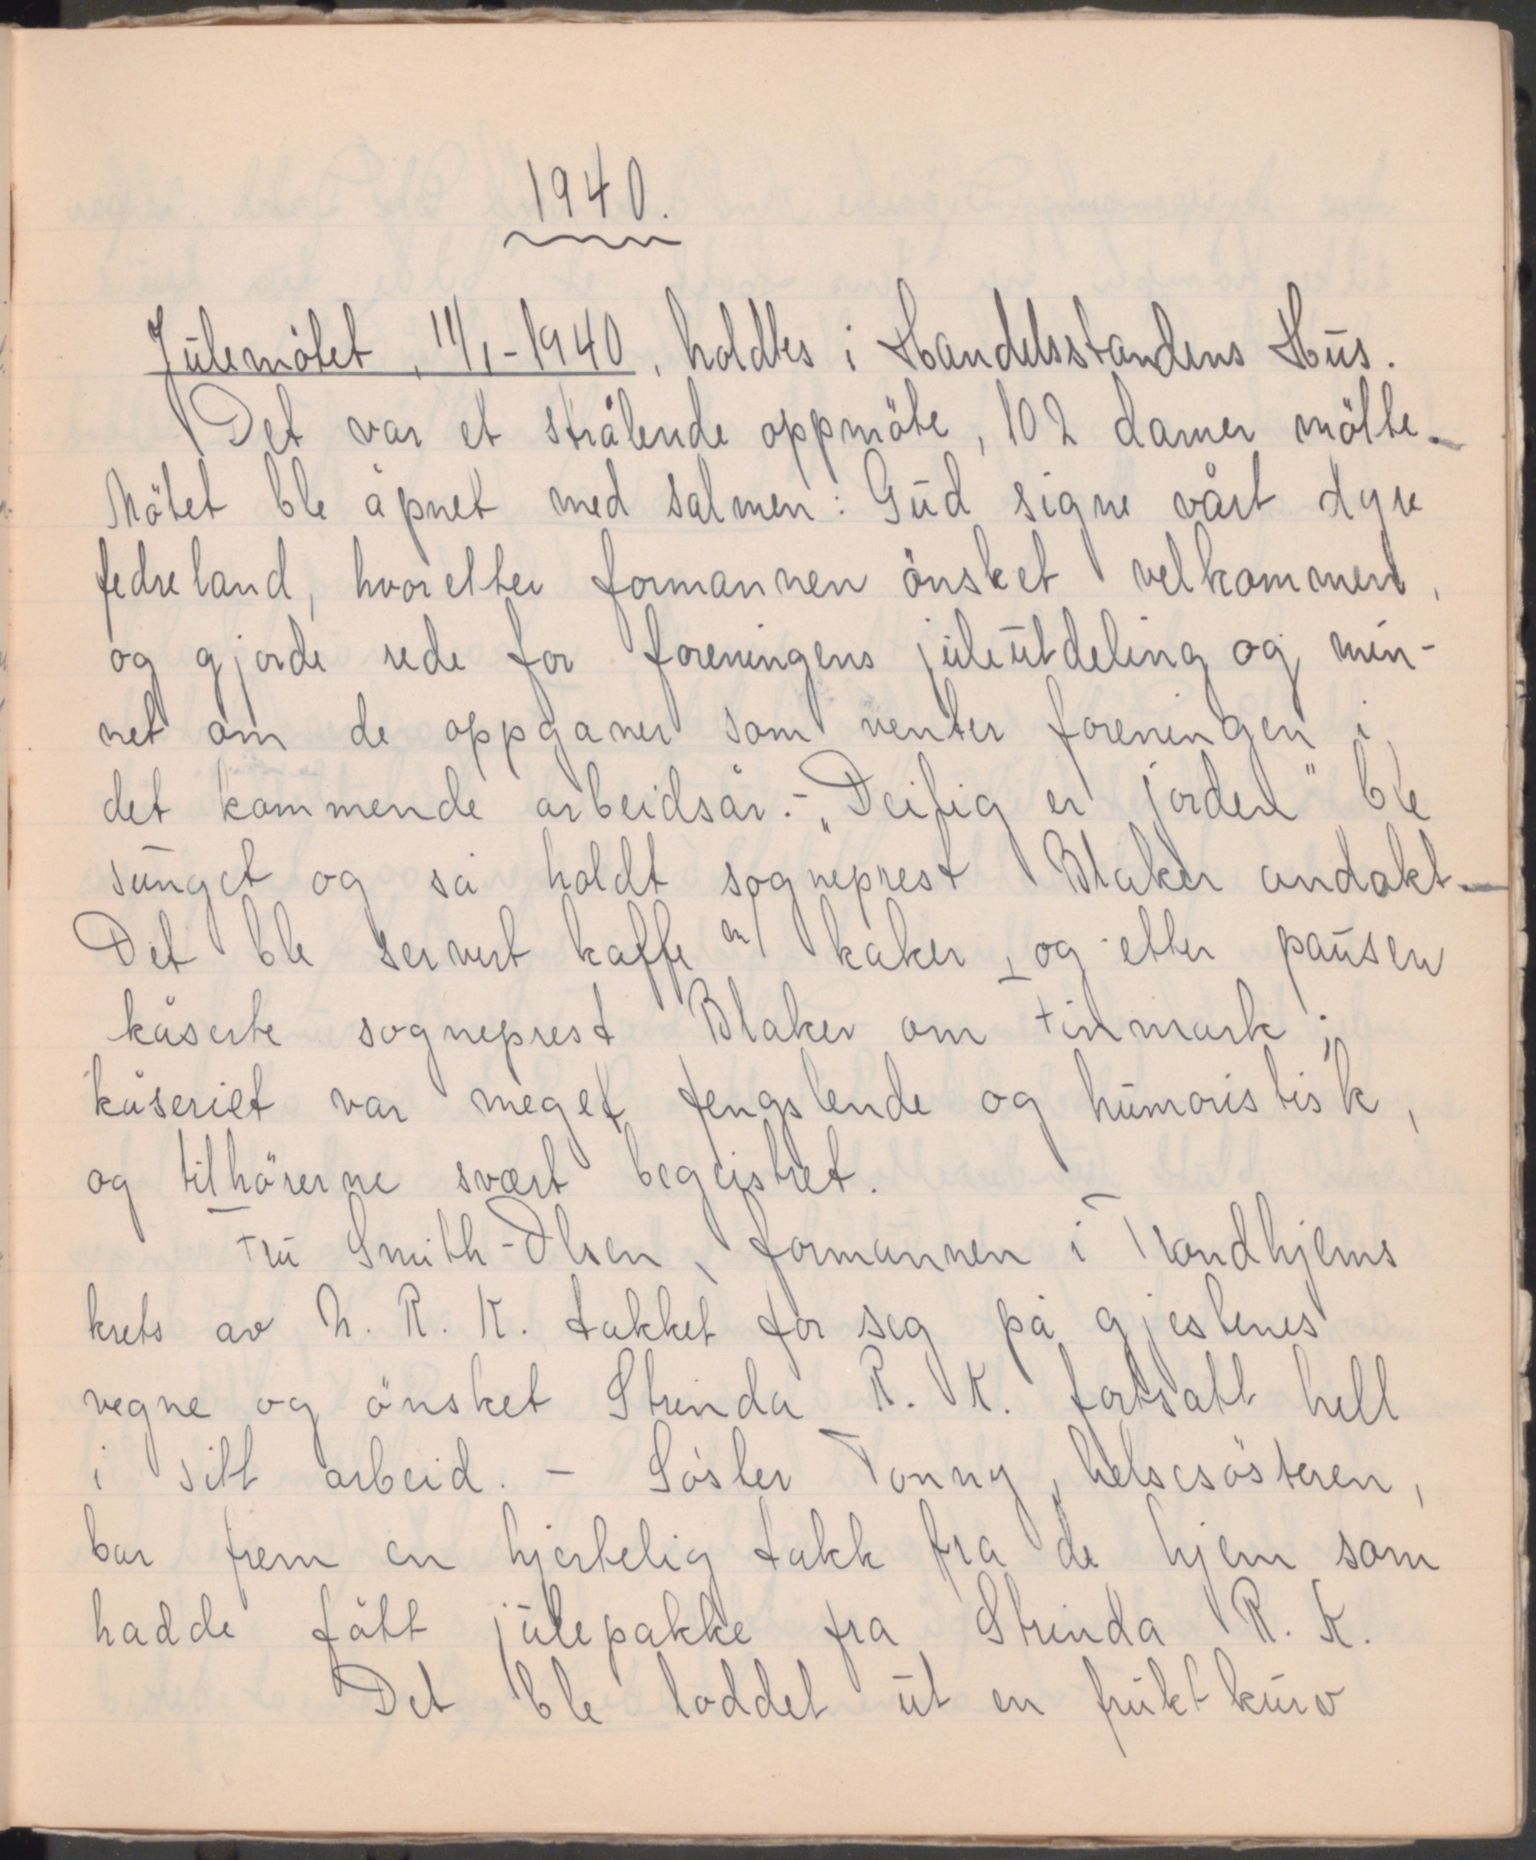 1940.
Julemötet, 11/1-1940, holdtes i Handelsstandens Hus.
Det var et strålende oppmöte, 102 damer mötte.—
Mötet ble åpnet med salmen: Gud signe vårt dyre
fedreland, hvoretter formannen önsket velkommen,
og gjorde rede for foreningens juleutdeling og min-
net om de oppgaver som venter foreningen i
det kommende arbeidsår.- „Deilig er jorden" ble
sunget og så holdt sogneprest Blaker andakt.—
Det ble servert kaffe m/ kaker, og etter pausen
kåserte sogneprest Blaker om Finmark;
kåseriet var meget fengslende og humoristisk,
og tilhörerne svært begeistret.
Fru Smith-Olsen, formannen i Trondhjems
krets av N. R. K. takket for seg på gjestenes
vegne og önsket Strinda R. K. fortsatt hell
i sitt arbeid. - Söster Tonny, helsesösteren,
bar frem en hjertelig takk fra de hjem som
hadde fått julepakke fra Strinda R. K.
Det ble loddet ut en fruktkurv